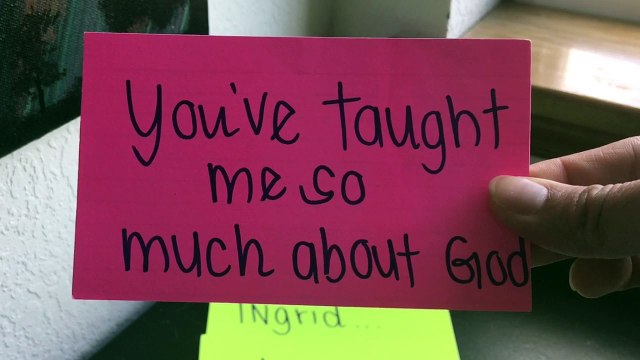 You've taught
me so
much about God
INgrid...